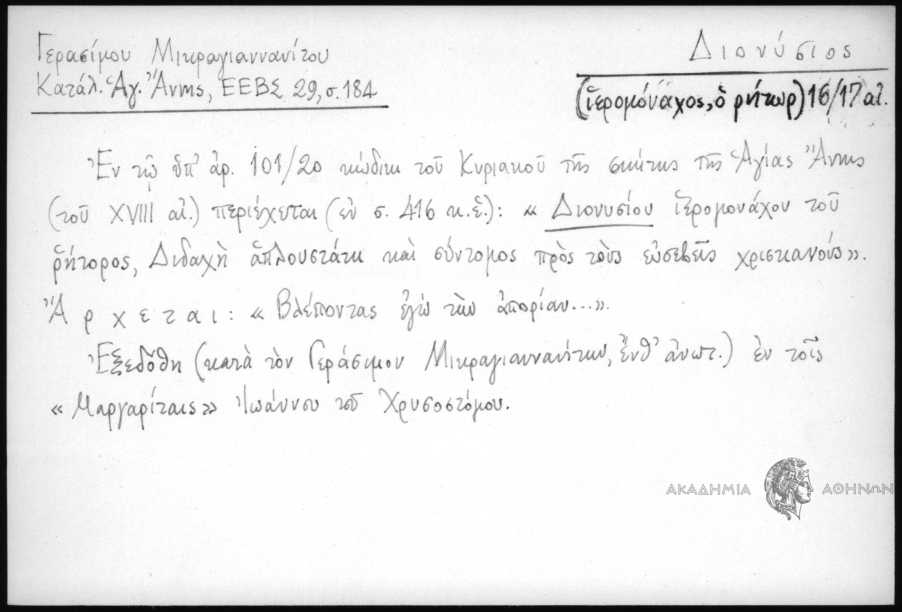 Γερασίμου Μικραγιαννανίτου
Κατάλ. Ἁγ. Ἄννης, ΕΕΒΣ 29, σ. 184
Διονύσιος
(ἱερομόναχος, ὁ ρήτωρ) 16/17 αἰ.
Ἐν τῷ ὑπ' ἀρ. 101/20 κώδικι τοῦ Κυριακοῦ τῆς σκήτης τῆς Ἁγίας Ἄννης
(τοῦ XVIII αἰ.) περιέχεται (ἐν σ. 416 κ.ἑ.): « Διονυσίου ἱερομονάχου τοῦ
ῥήτορος, Διδαχὴ ἁπλουστάτη καὶ σύντομος πρὸς τοὺς εὐσεβεῖς χριστιανούς».
Ἄρχεται: « Βλέποντας ἐγὼ τὴν ἀπορίαν...».
Ἐξεδόθη (κατὰ τὸν Γεράσιμον Μικραγιαννανίτην, ἔνθ' ἀνωτ.) ἐν τοῖς
« Μαργαρίταις» Ἰωάννου τοῦ Χρυσοστόμου.
ΑΚΑΔΗΜΙΑ ΑΘΗΝΩΝ